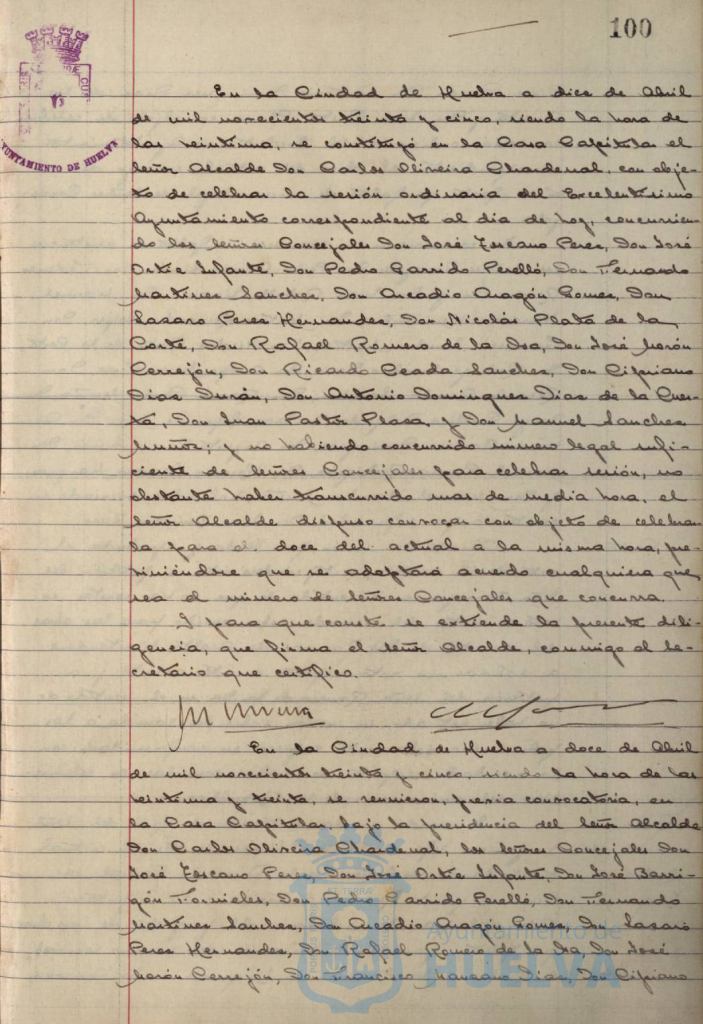 100
AYUNTAMIENTO DE HUELVA
En la Ciudad de Huelva a diez de Abril
de mil novecientos treinta y cinco, siendo la hora de
las veintiuna, se constituyó en la Casa Capitular el
señor Alcalde Don Carlos Oliveira Chardenal, con obje-
to de celebrar la sesión ordinaria del Excelentísimo
Ayuntamiento correspondiente al dia de hoy, concurrien-
do los señores Concejales Don José Toscano Perez, Don José
Ortiz Infante, Don Pedro Garrido Perelló, Don Fernando
Martinez Sanchez, Don Arcadio Aragón Gomez, Don
Lazaro Perez Hernandez, Don Nicolás Plata de la
Corte, Don Rafael Romero de la Isa, Don José Morón
Cerrejón, Don Ricardo Ceada Sanchez, Don Cipriano
Diaz Durán, Don Antonio Dominguez Diaz de la Cues-
ta, Don Juan Pastor Plaza, y Don Manuel Sanchez
Muñoz; y no habiendo concurrido número legal sufi-
ciente de señores Concejales para celebrar sesión, no
obstante haber transcurrido mas de media hora, el
señor Alcalde dispuso convocar con objeto de celebrar-
la para el doce del actual a la misma hora, pre-
viniéndose que se adoptará acuerdo cualquiera que
sea el número de señores Concejales que concurra.
Y para que conste se extiende la presente dili-
gencia, que firma el señor Alcalde, conmigo el Se-
cretario que certifico.
En la Ciudad de Huelva a doce de Abril
de mil novecientos treinta y cinco, siendo la hora de las
veintiuna y treinta, se reunieron, previa convocatoria, en
la Casa Capitular, bajo la presidencia del Señor Alcalde
Don Carlos Oliveira Chardenal, los señores Concejales Don
José Toscano Perez, Don José Ortiz Infante, Don José Barri-
gón Fornieles, Don Pedro Garrido Perelló, Don Fernando
Martinez Sanchez, Don Arcadio Aragón Gomez, Don Lazaro
Perez Hernandez, Don Rafael Romero de la Isa, Don José
Morón Cerrejón, Don Francisco Manzano Diaz, Don Cipriano
Ayuntamiento de
HUELVA